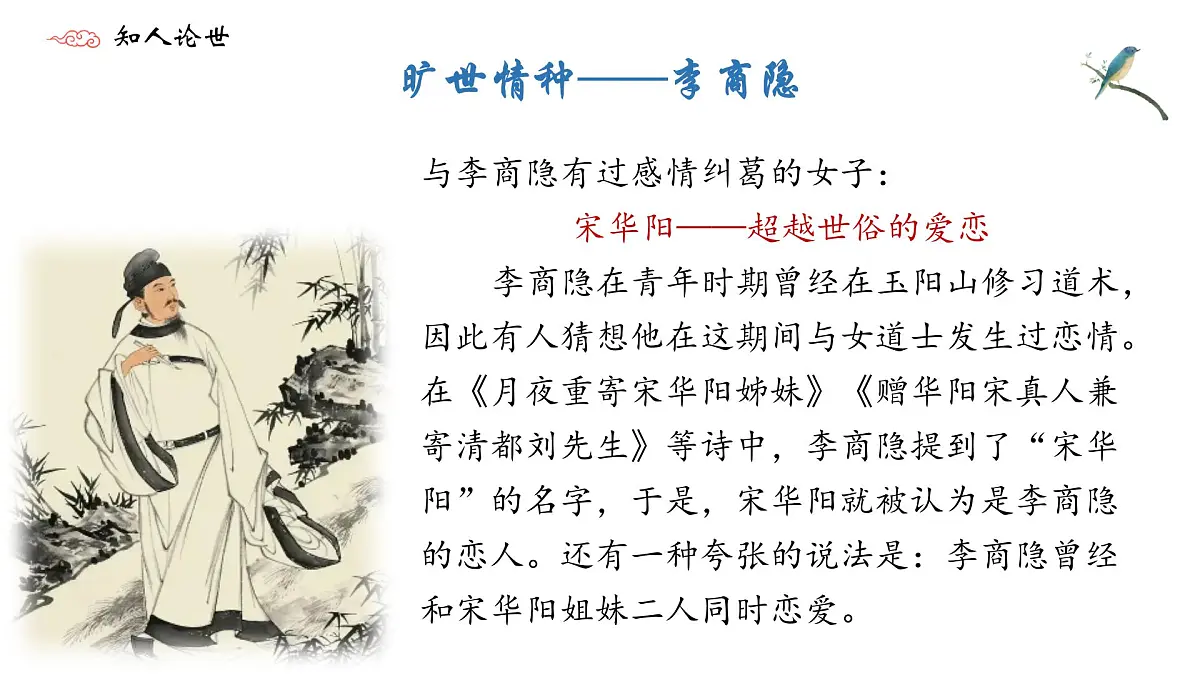 知人论世
旷世情种——李商隐
与李商隐有过感情纠葛的女子：
宋华阳——超越世俗的爱恋
李商隐在青年时期曾经在玉阳山修习道术，
因此有人猜想他在这期间与女道士发生过恋情。
在《月夜重寄宋华阳姊妹》《赠华阳宋真人兼
寄清都刘先生》等诗中，李商隐提到了“宋华
阳”的名字，于是，宋华阳就被认为是李商隐
的恋人。还有一种夸张的说法是：李商隐曾经
和宋华阳姐妹二人同时恋爱。